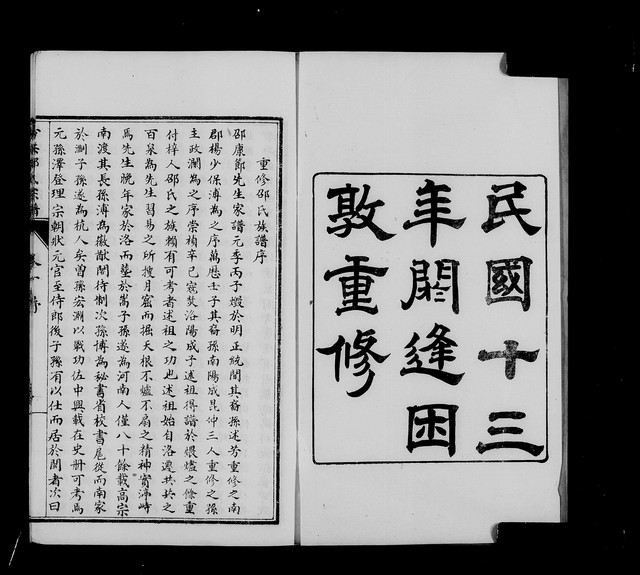 民國十三
年閼逢困
敦重修
重修邵氏族譜序
邵康節先生家譜元季丙子燬於明正統間其裔孫述芳重修之南
郡楊少保溥為之序萬歷壬子其裔孫南陽成昆仲三人重修之孫
主政瀾為之序崇禎辛巳寇焚洛陽成子述祖得譜於煨爐之餘重
付梓人邵氏之族賴有可考者述祖之功也述祖始自洛遷共共之
百泉為先生習易之所搜月窟而掘天根不爐不扇之精神實沸峙
焉先生晚年家於洛而塟於嵩子孫遂為河南人僅八十餘載高宗
南渡其長孫溥為徽猷閣待制次孫博為秘書省校書尾從而南家
於淛子孫遂為杭人矣曾孫宏淵以戰功佐中興載在史册可考焉
元孫澤登理宗朝狀元官至侍郎後子孫有以仕而居於閩者次曰
邵氏宗譜
卷一 序